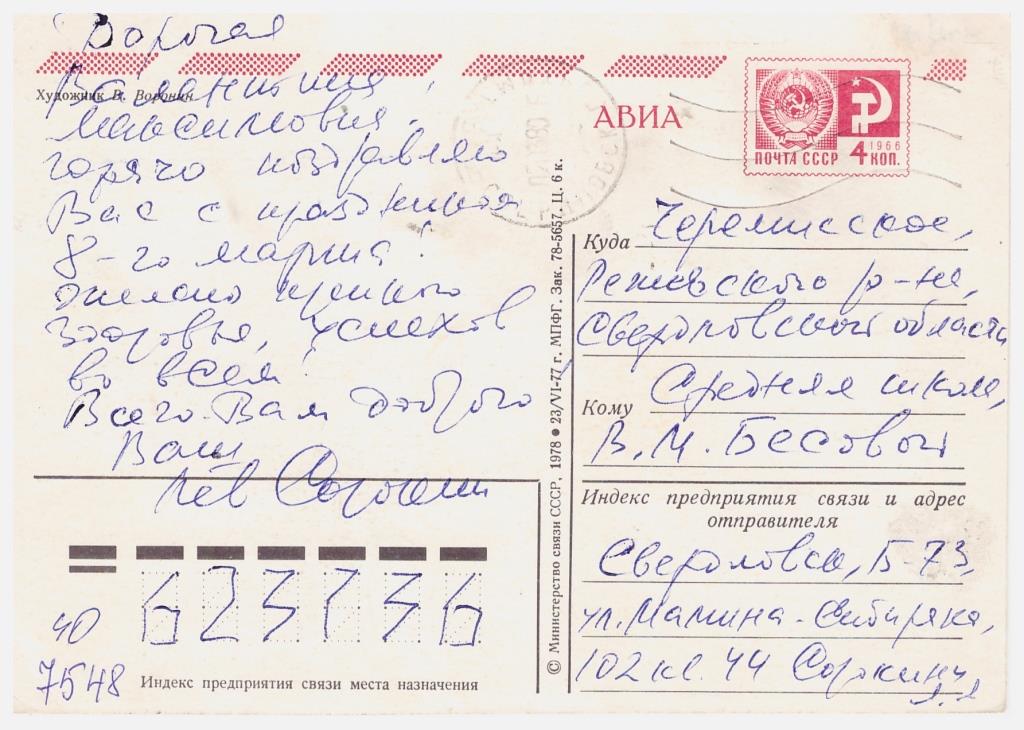 Дорогая
Валентина
Художник В. Воронин
Максимовна!
горячо поздравляю
Вас с праздником
8-го марта!
Желаю крепкого
здоровья, успехов
во всем!
Всего Вам доброго
Ваш
Лев Сорокин
АВИА
ПОЧТА СССР 4 КОП.
1966
Куда Черемисское,
Режевского р-на,
Свердловской области
Средняя школа,
Кому
В. М. Бесовой
Индекс предприятия связи и адрес
отправителя
Свердловск, Б-73,
ул. Мамина-Сибиряка,
102 кв. 44 Сорокин
© Министерство связи СССР, 1978 ● 23/VI-77 г. МПФГ. Зак. 78-5657. Ц. 6 к.
623736
40
7548
Индекс предприятия связи места назначения